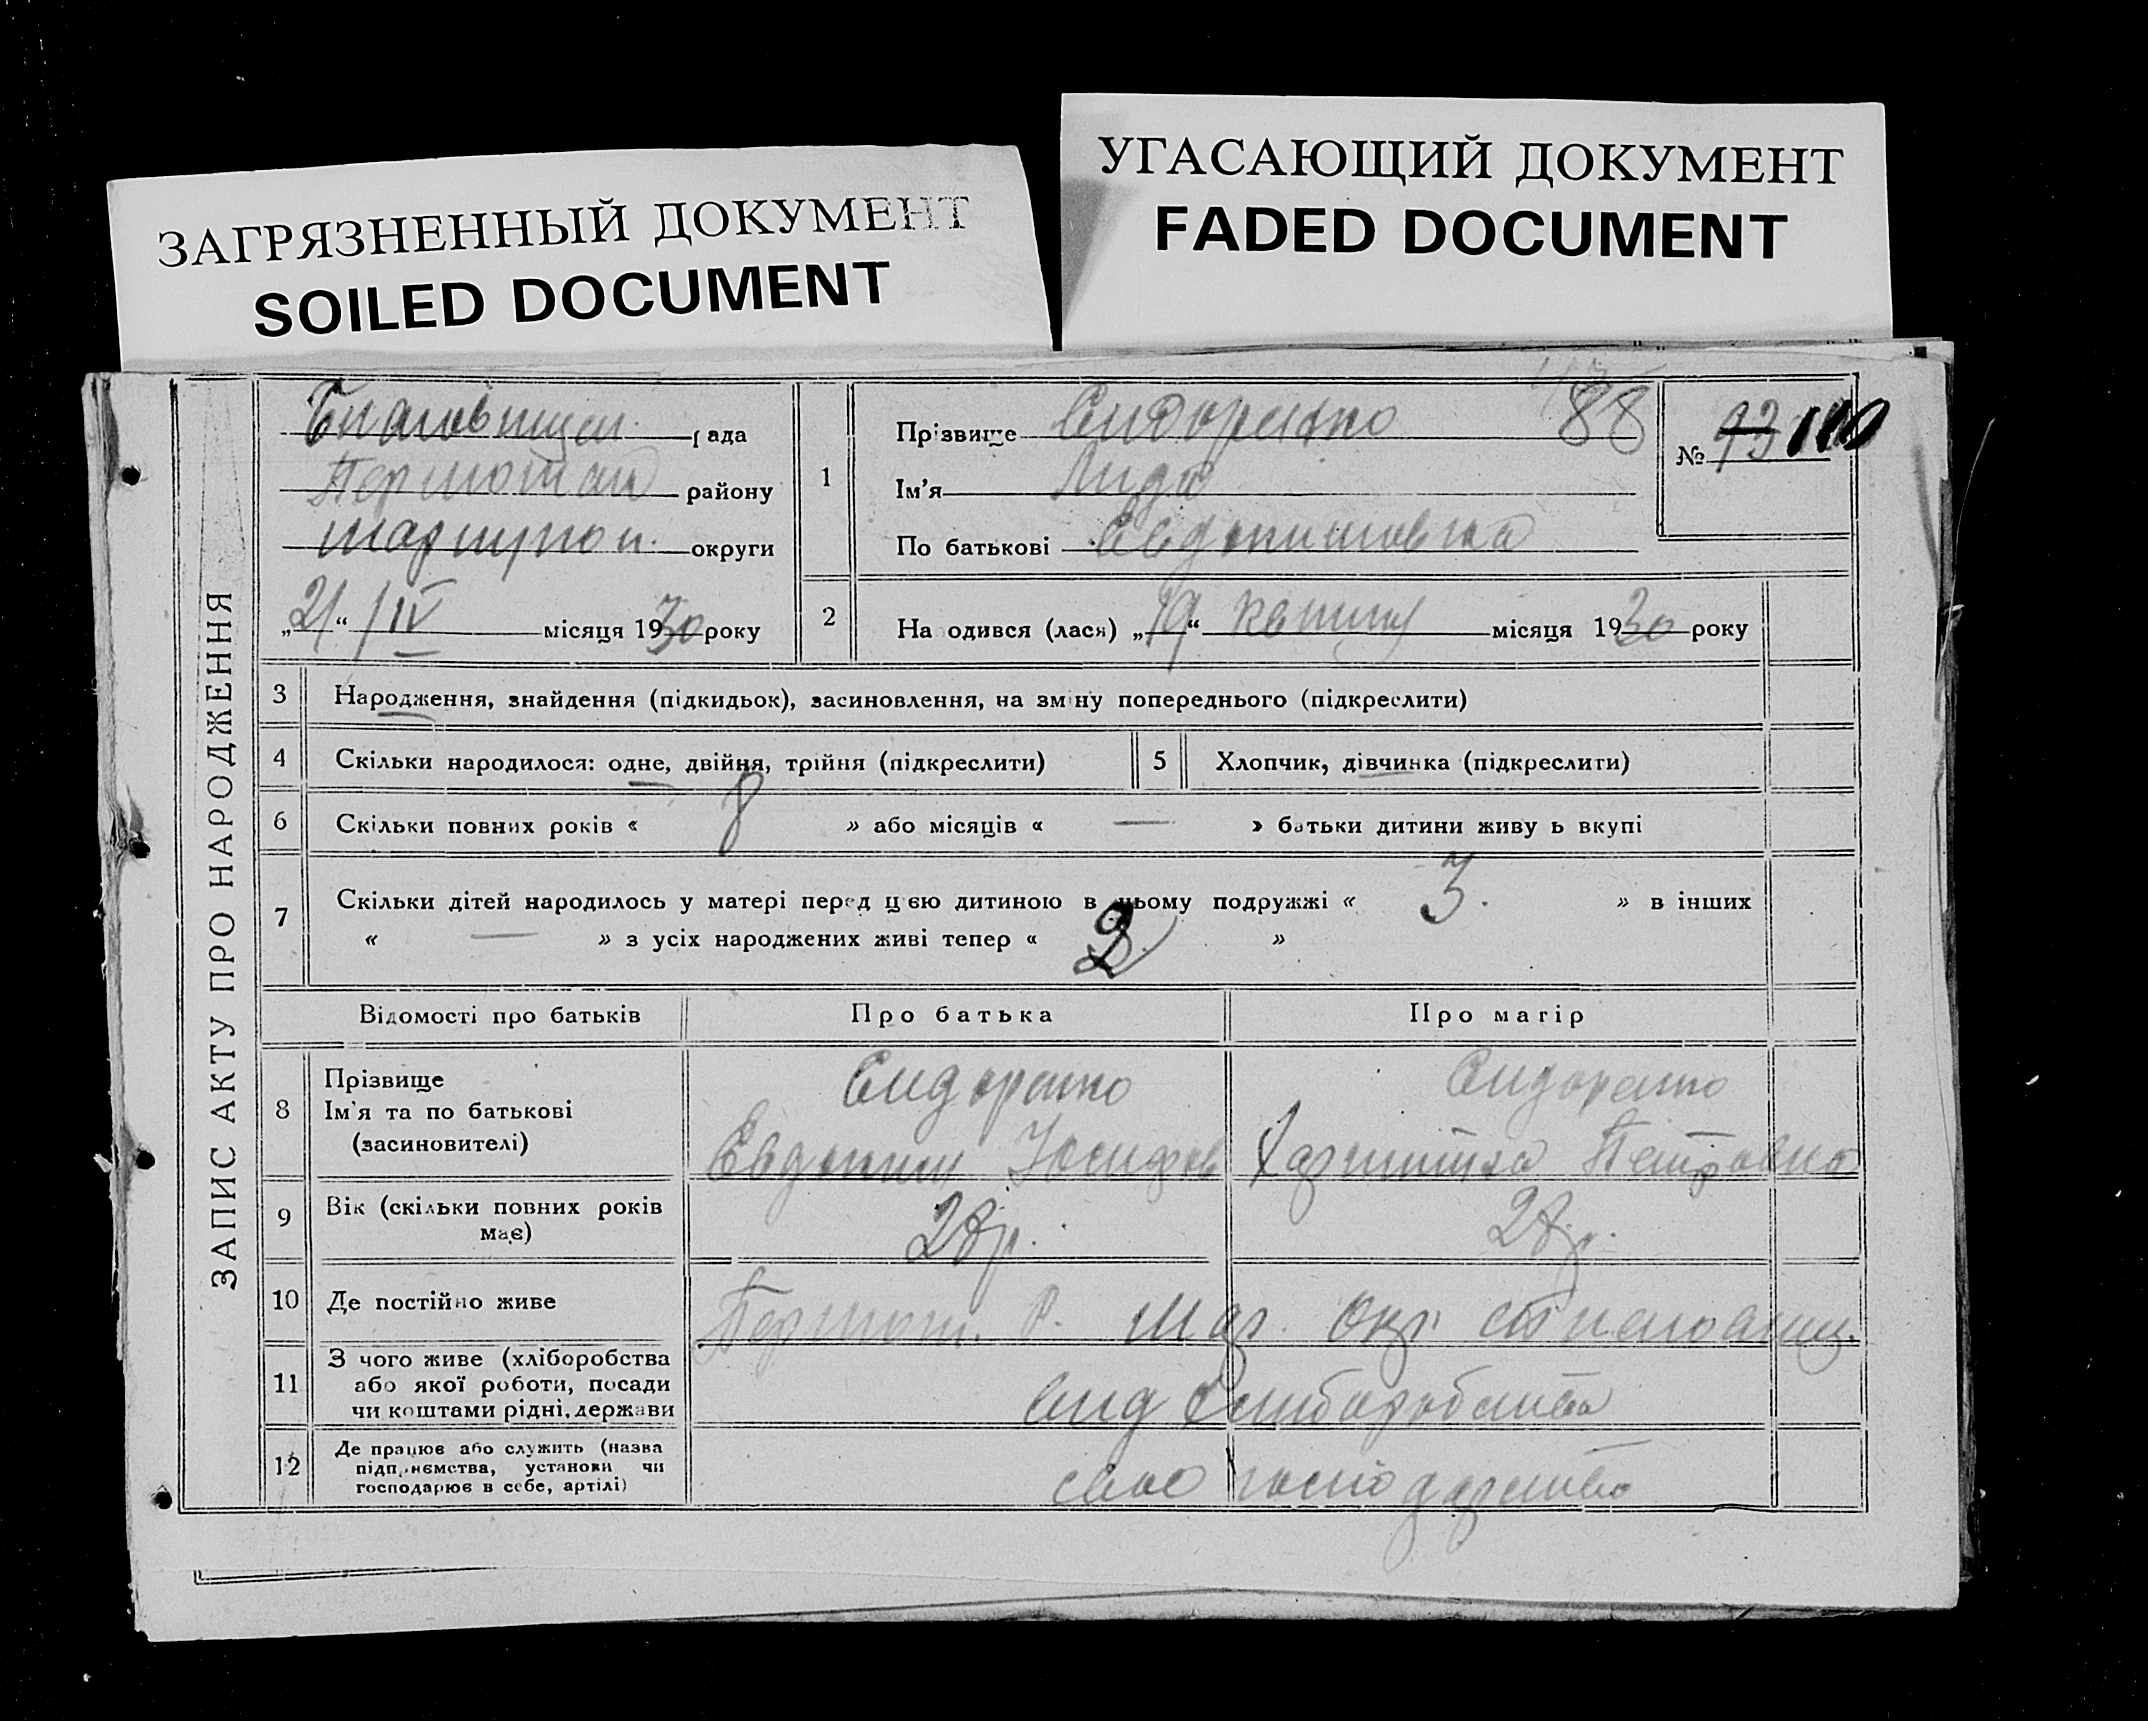 ЗАГРЯЗНЕННЫЙ ДОКУМЕНТ
SOILED DOCUMENT
УГАСАЮЩИЙ ДОКУМЕНТ
FADED DOCUMENT
ЗАПИС АКТУ ПРО НАРОДЖЕННЯ
рада
району
округи
„21“ /IV місяця 1930 року
1
Прізвище Сидоренко 88
Ім'я Лида
По батькові
№ 93 100
2 На одився (лася) „19“ квітня місяця 1930 року
3 Народження, знайдення (підкидьок), засиновлення, на зміну попереднього (підкреслити)
4 Скільки народилося: одне, двійня, трійня (підкреслити) 5 Хлопчик, дівчинка (підкреслити)
6 Скільки повних років « 8 » або місяців « — » батьки дитини живу ь вкупі
7 Скільки дітей народилось у матері перед цією дитиною в цьому подружжі « 3. » в інших
« — » з усіх народжених живі тепер « 2 »
Відомості про батьків Про батька Про матір
8 Прізвище Сидоренко Сидоренко
Ім'я та по батькові
(засиновителі) Евдоким Иосифов Петровна
9 Вік (скільки повних років
має) 28 р. 28 р.
10 Де постійно живе Мар. окр.
11 З чого живе (хліборобства
або якої роботи, посади
чи коштами рідні, держави
від хліборобства
12 Де працює або служить (назва
підприємства, установи чи
господарює в себе, артілі)
своє господарство